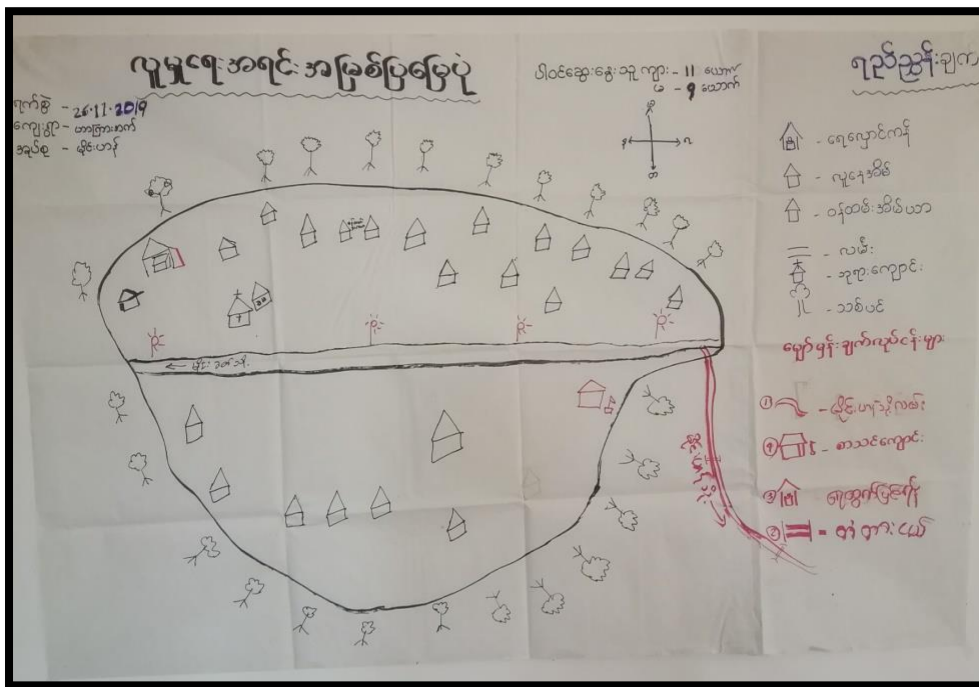 လူမှုရေးအရင်းအမြစ်ပြမြေပုံ
ရက်စွဲ - 26.11.2019
ကျေးရွာ -
အုပ်စု - မိုင်းဟန်
ပါဝင်ဆွေးနွေးသူ ကျား - 11 ယောက်
မ - 9 ယောက်
ရည်ညွှန်းချက်
ရေလှောင်ကန်
လူနေအိမ်
ဝန်ထမ်းအိမ်ယာ
လမ်း
ဘုရားကျောင်း
သစ်ပင်
မျှော်မှန်းချက်လုပ်ငန်းများ
① - မိုင်းဟန်သို့လမ်း
④ - စာသင်ကျောင်း
③
② = တံတားငယ်
မိုင်းဟန်သို့